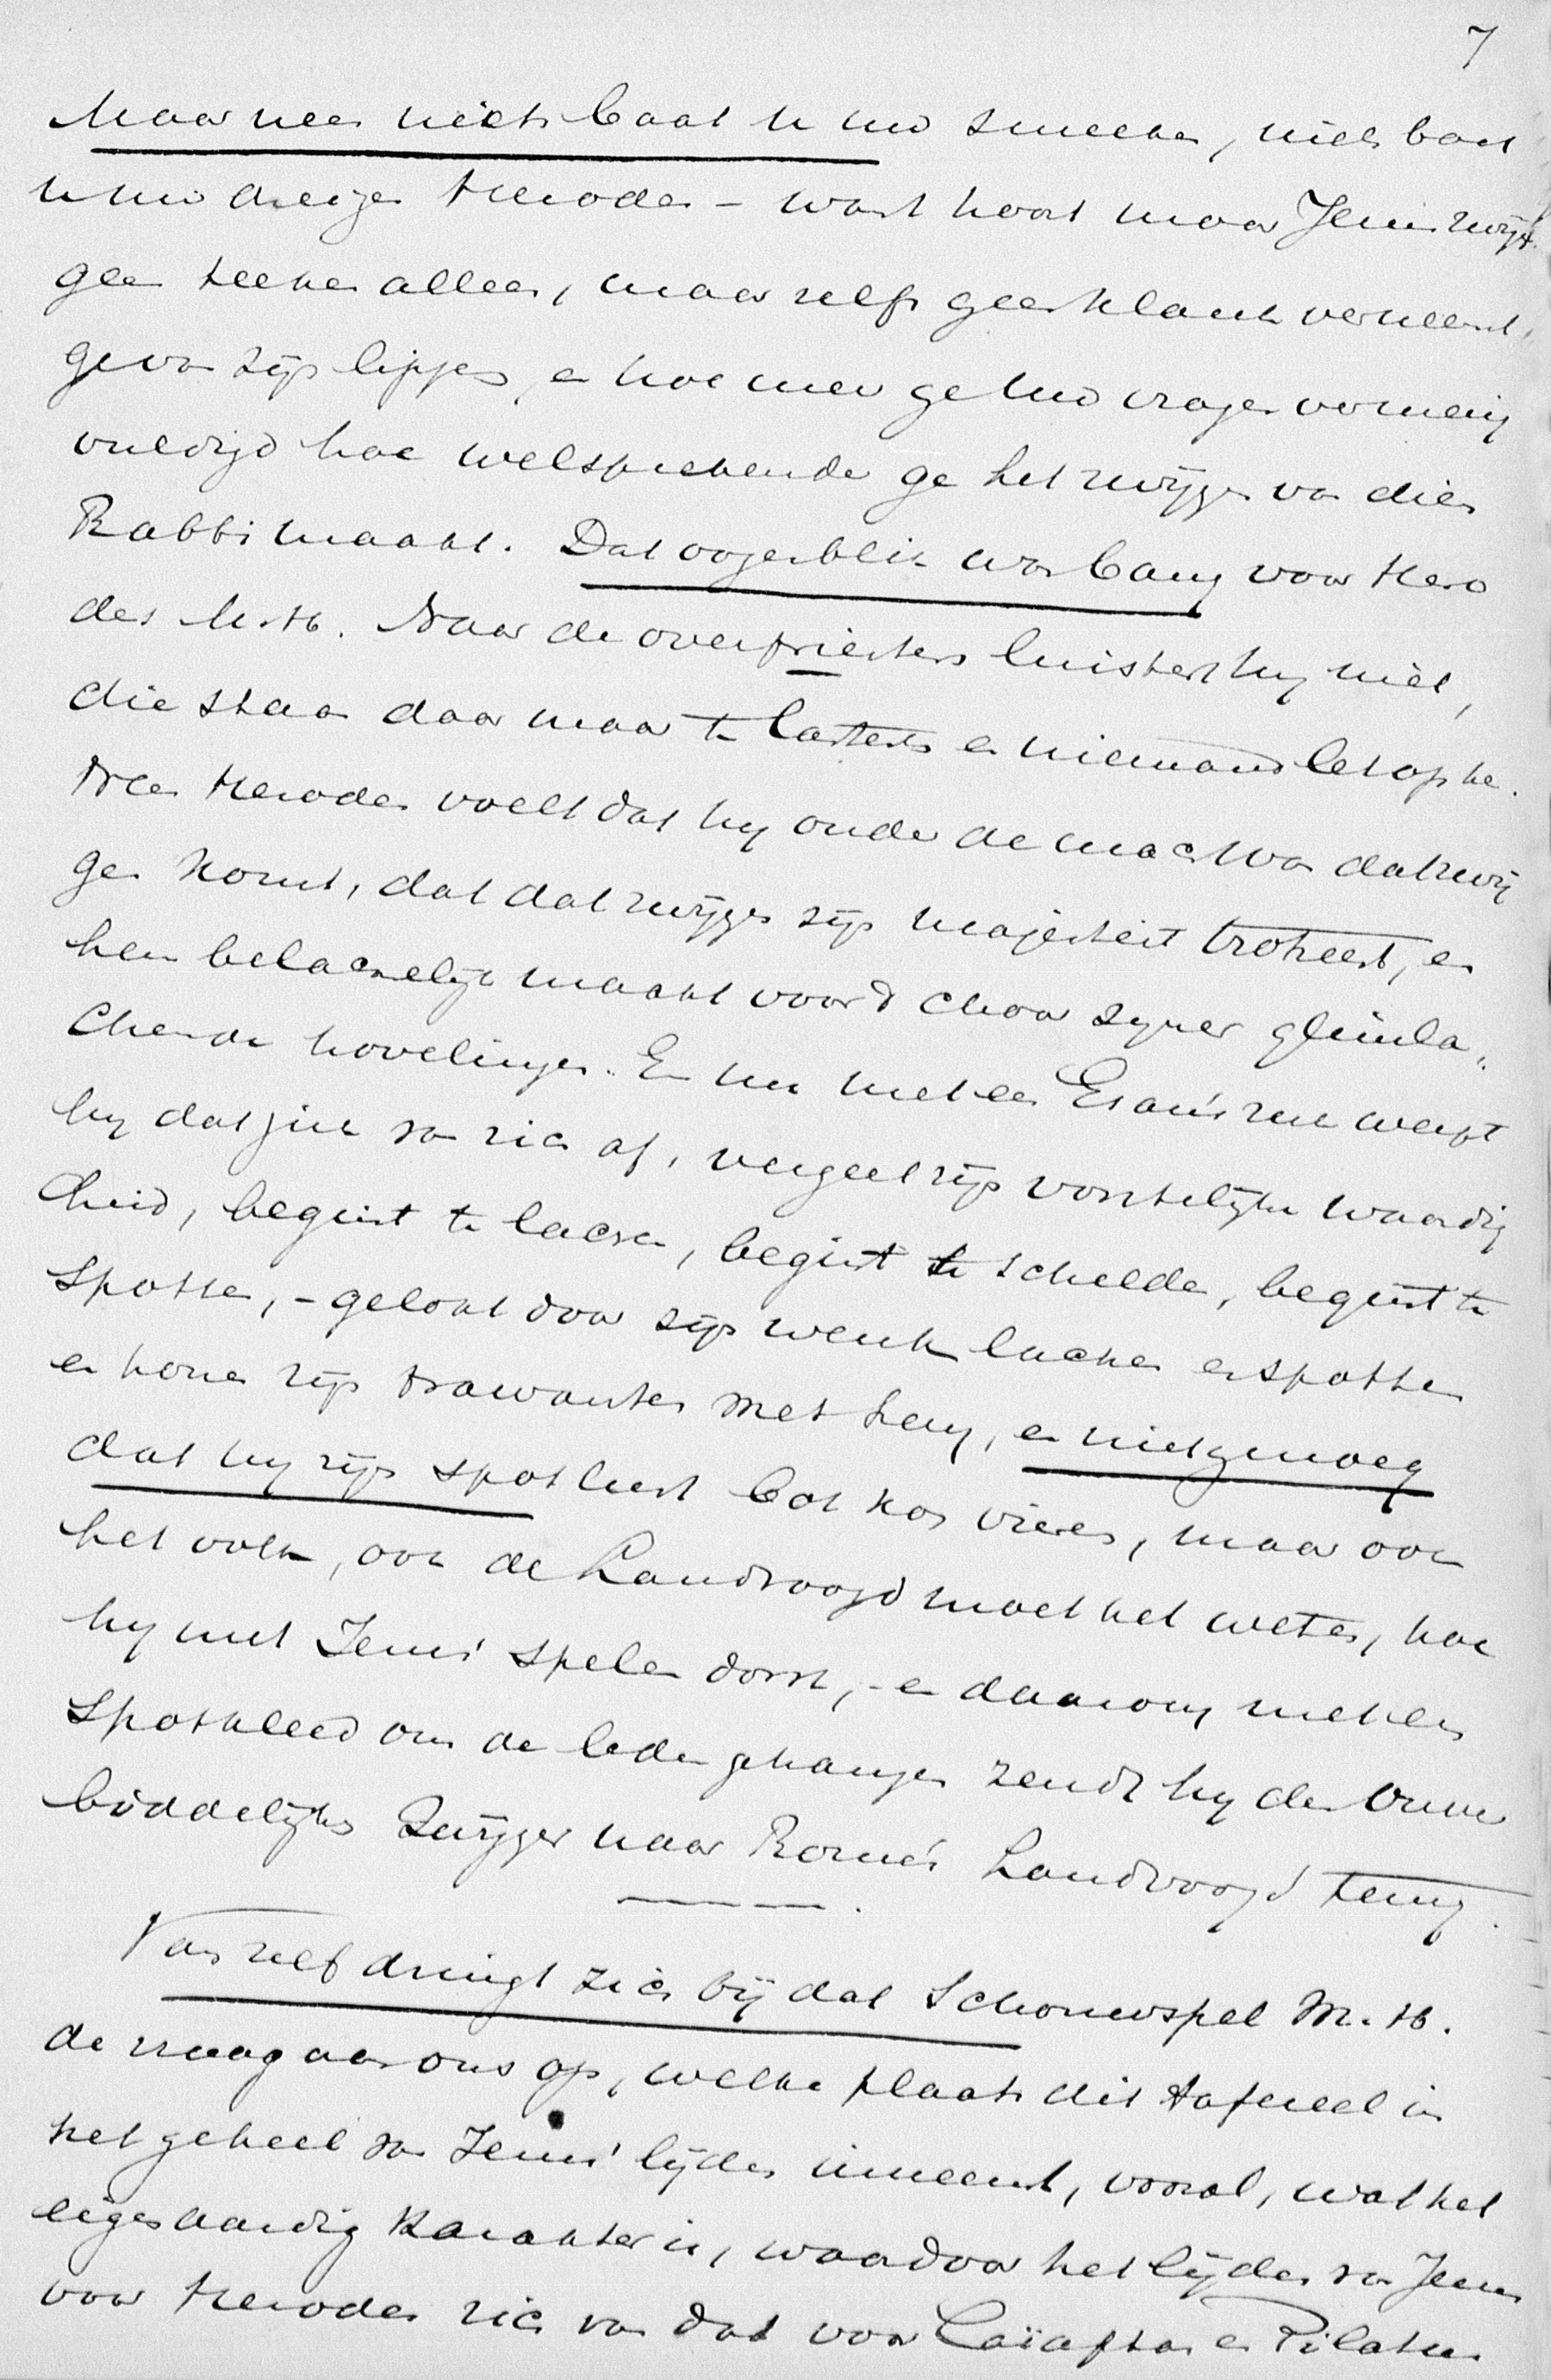 7
Maar neen niets baat u uw smeeken, niets baat
u uw dreigen Herodes – want hoort maar Jezus zwijgt.
geen teeken alleen, maar zelfs geen klank verneemt
ge van zijn lippen, en hoe meer ge uw vragen vermenig
vuldigd hoe welsprekender ge het zwijgen van dien
Rabbi maakt. Dat oogenblik was bang voor Hero
des M. H. Naar de overpriesters luistert hij niet,
die staan daar maar te lasteren en niemand let op hen.
Neen Herodes voelt dat hij onder de macht van dat zwij
gen komt, dat dat zwijgen zijn majesteit trotseert, en
hem belachelijk maakt voor d' choor zijner glimla,
chende hovelingen. En nu met een Ezau's ruk werpt
hij dat juk van zich af, vergeet zijn vorstelijke waardig
heid, begint te lachen, begint te schelden, begint te
spotten, – gelokt door zijn wenk lachen en spotten
en honen zijn trawanten met hem, en niet genoeg
dat hij zijn spotlust bot kon vieren, maar ook
het volk, ook de Landvoogd moet het weten, hoe
hij met Jezus' spelen dorst, – en daarom met een
spotkleed om de leden gehangen zendt hij den onver
biddelijken Zwijger naar Rome's Landvoogd terug.
Van zelf dringt zich bij dat Schouwspel M. H.
de vraag aan ons op, welke plaats dit tafereel in
het geheel van Jezus' lijden inneemt, vooral, wat het
eigenaardig karakter is, waardoor het lijden van Jezus
voor Herodes zich van dat voor Caïaphas en Pilatus